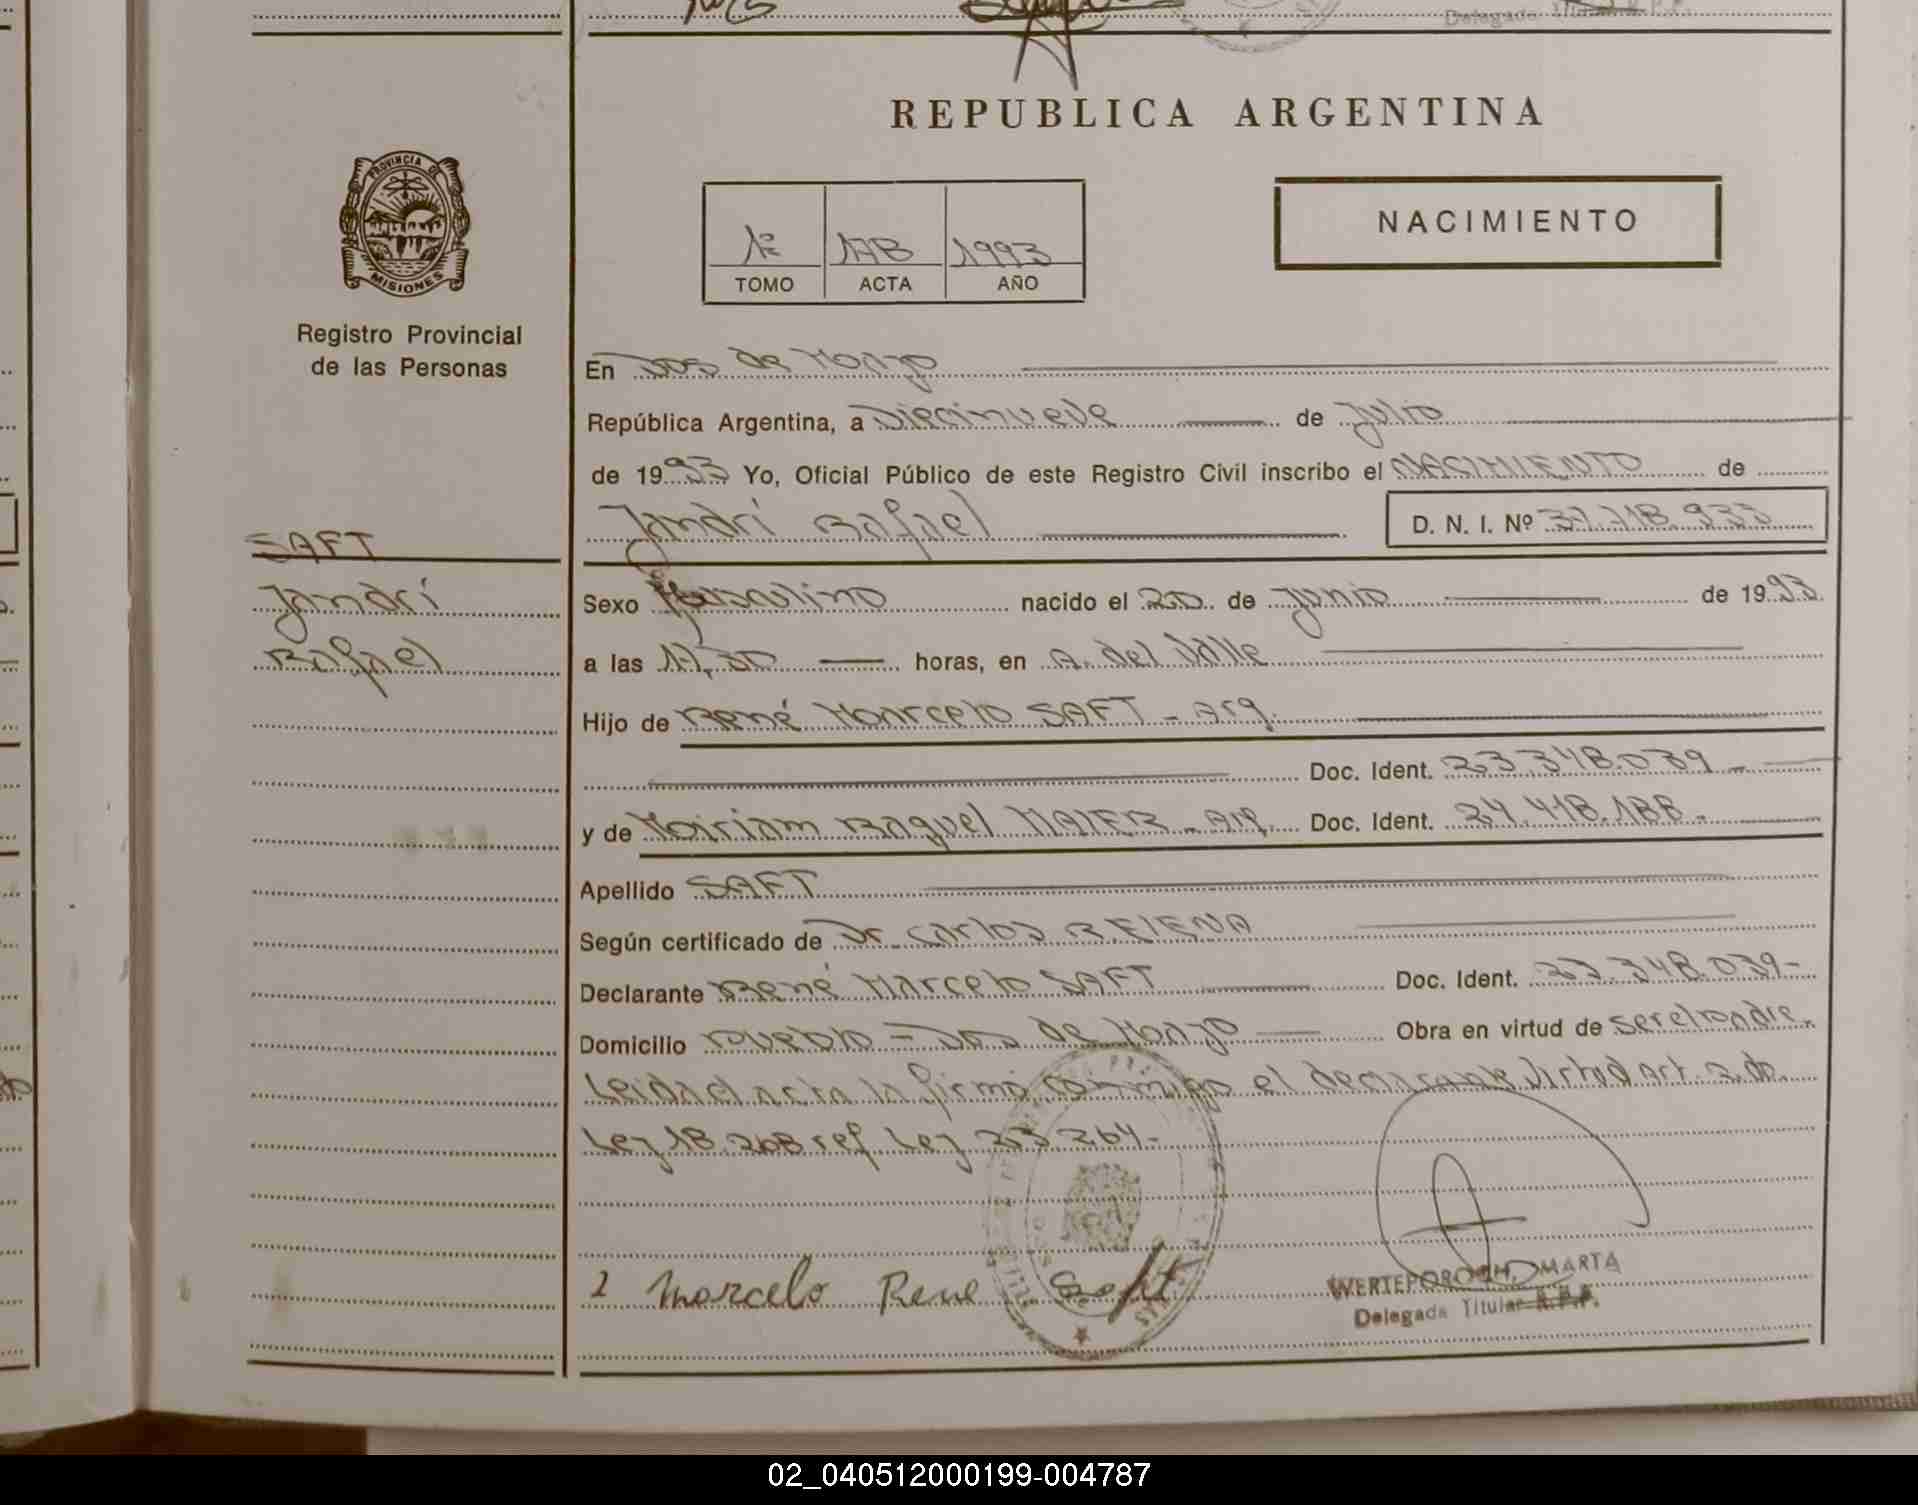 Delegada Titular R.P.P.
REPUBLICA ARGENTINA
PROVINCIA DE
MISIONES
Registro Provincial
de las Personas
1º 178 1993
TOMO ACTA AÑO
NACIMIENTO
En Dos de Mayo
República Argentina, a Diecinueve de Julio
de 1993 Yo, Oficial Público de este Registro Civil inscribo el NACIMIENTO de
Jandrí Rafael D. N. I. Nº 37.718.933
SAFT
Jandrí
Rafael
Sexo Masculino nacido el 20 de Junio de 1993
a las 11,30 horas, en A. del Valle
Hijo de René Marcelo SAFT - Arg.
Doc. Ident. 23.348.039 -
y de Miriam Raquel MAIER - Arg. Doc. Ident. 24.418.188 -
Apellido SAFT
Según certificado de Dr. Carlos
Declarante René Marcelo SAFT Doc. Ident. 23.348.039-
Domicilio Pueblo - Dos de Mayo Obra en virtud de ser el padre.
Leida el acta la firma conmigo el declarante Virtud art. 2do.
Ley 18.268 ref. Ley 23.264-
Marcelo Rene Saft
WERTEPOROCH, MARTA
Delegada Titular R.P.P.
02_040512000199-004787